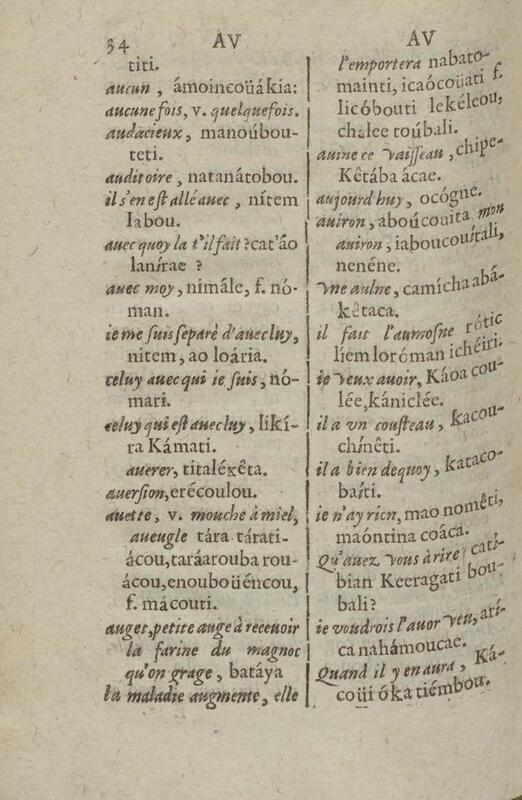 34
AV
titi.
aucun, ámoincoüákia:
aucunefois, v. quelquefois.
audacieux, manoúbou-
teti.
auditoire, natanátobou.
il s'en est allé auec, nítem
labou.
auec quoy la t'il fait? cat'áo
lanírae?
auec moy, nimále, f. nó-
man.
ie me suis separè d'auec luy,
nitem, ao loária.
celuy auec qui ie suis, nó-
mari.
celuy qui est auec luy, likí-
ra Kámati.
auerer, titalékêta.
auersion, erécoulou.
auette, v. mouche à miel,
aueugle tára tárati-
ácou, taráarouba rou-
ácou, enouboüéncou,
f. mácouti.
auget, petite auge à receuoir
la farine du magnoc
qu'on grage, batáya
la maladie augmente, elle
AV
l'emportera nabato-
mainti, icaócoüati f.
licóbouti lekéleou,
chalee toúbali.
auine ce vaisseau, chipe-
Kêtába ácae.
aujourd'huy, ocógne.
auiron, aboúcouita, mon
auiron, iaboucouítali,
nenéne.
vne aulne, camícha abá-
kêtaca.
il fait l'aumosne rótic
liem loróman ichéiri.
ie veux auoir, Káoa cou-
lée, kániclée.
il a vn cousteau, kacou-
chínêti.
il a bien dequoy, kataco-
baíti.
ie n'ay rien, mao nomêti,
maóntina coáca.
Qu'auez vous à rire? cati-
bian Keeragati bou-
bali?
ie voudrois l'auor veu, arí-
ca nahámoucae.
Quand il y en aura, Ká-
coüi óka tiémbou.